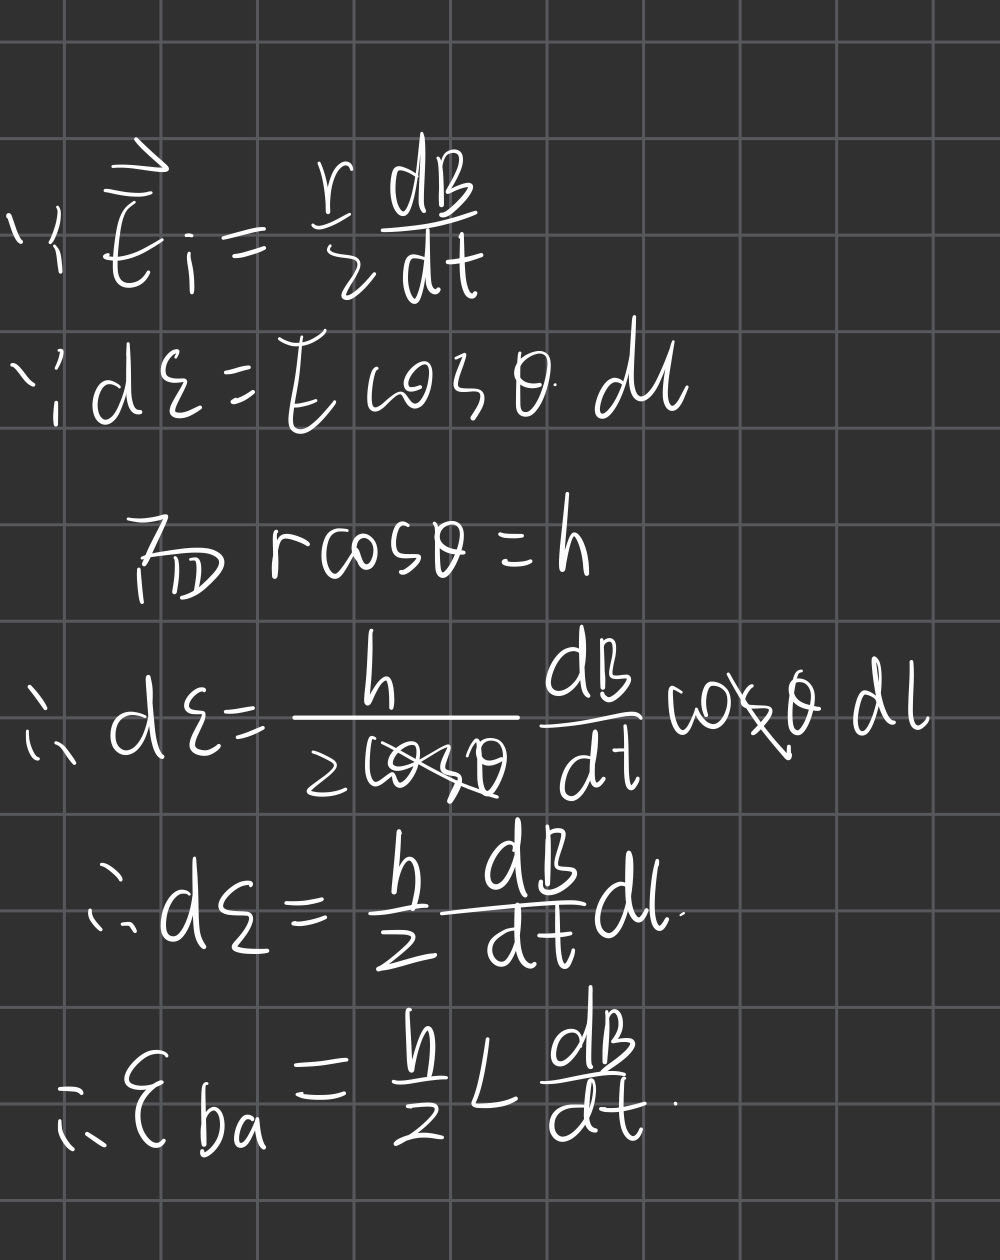 ∵ E⃗i = r/2 dB/dt
∵ dε = E cosθ · dl
而 rcosθ = h
∴ dε = h/(2cosθ) dB/dt cosθ dl
∴ dε = h/2 dB/dt dl.
∴ εba = h/2 L dB/dt.